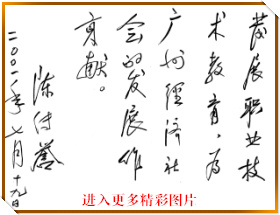 发展职业技
术教育，为
广州经济社
会的发展作
贡献。
陈传誉
二〇〇一年七月十九日
进入更多精彩图片